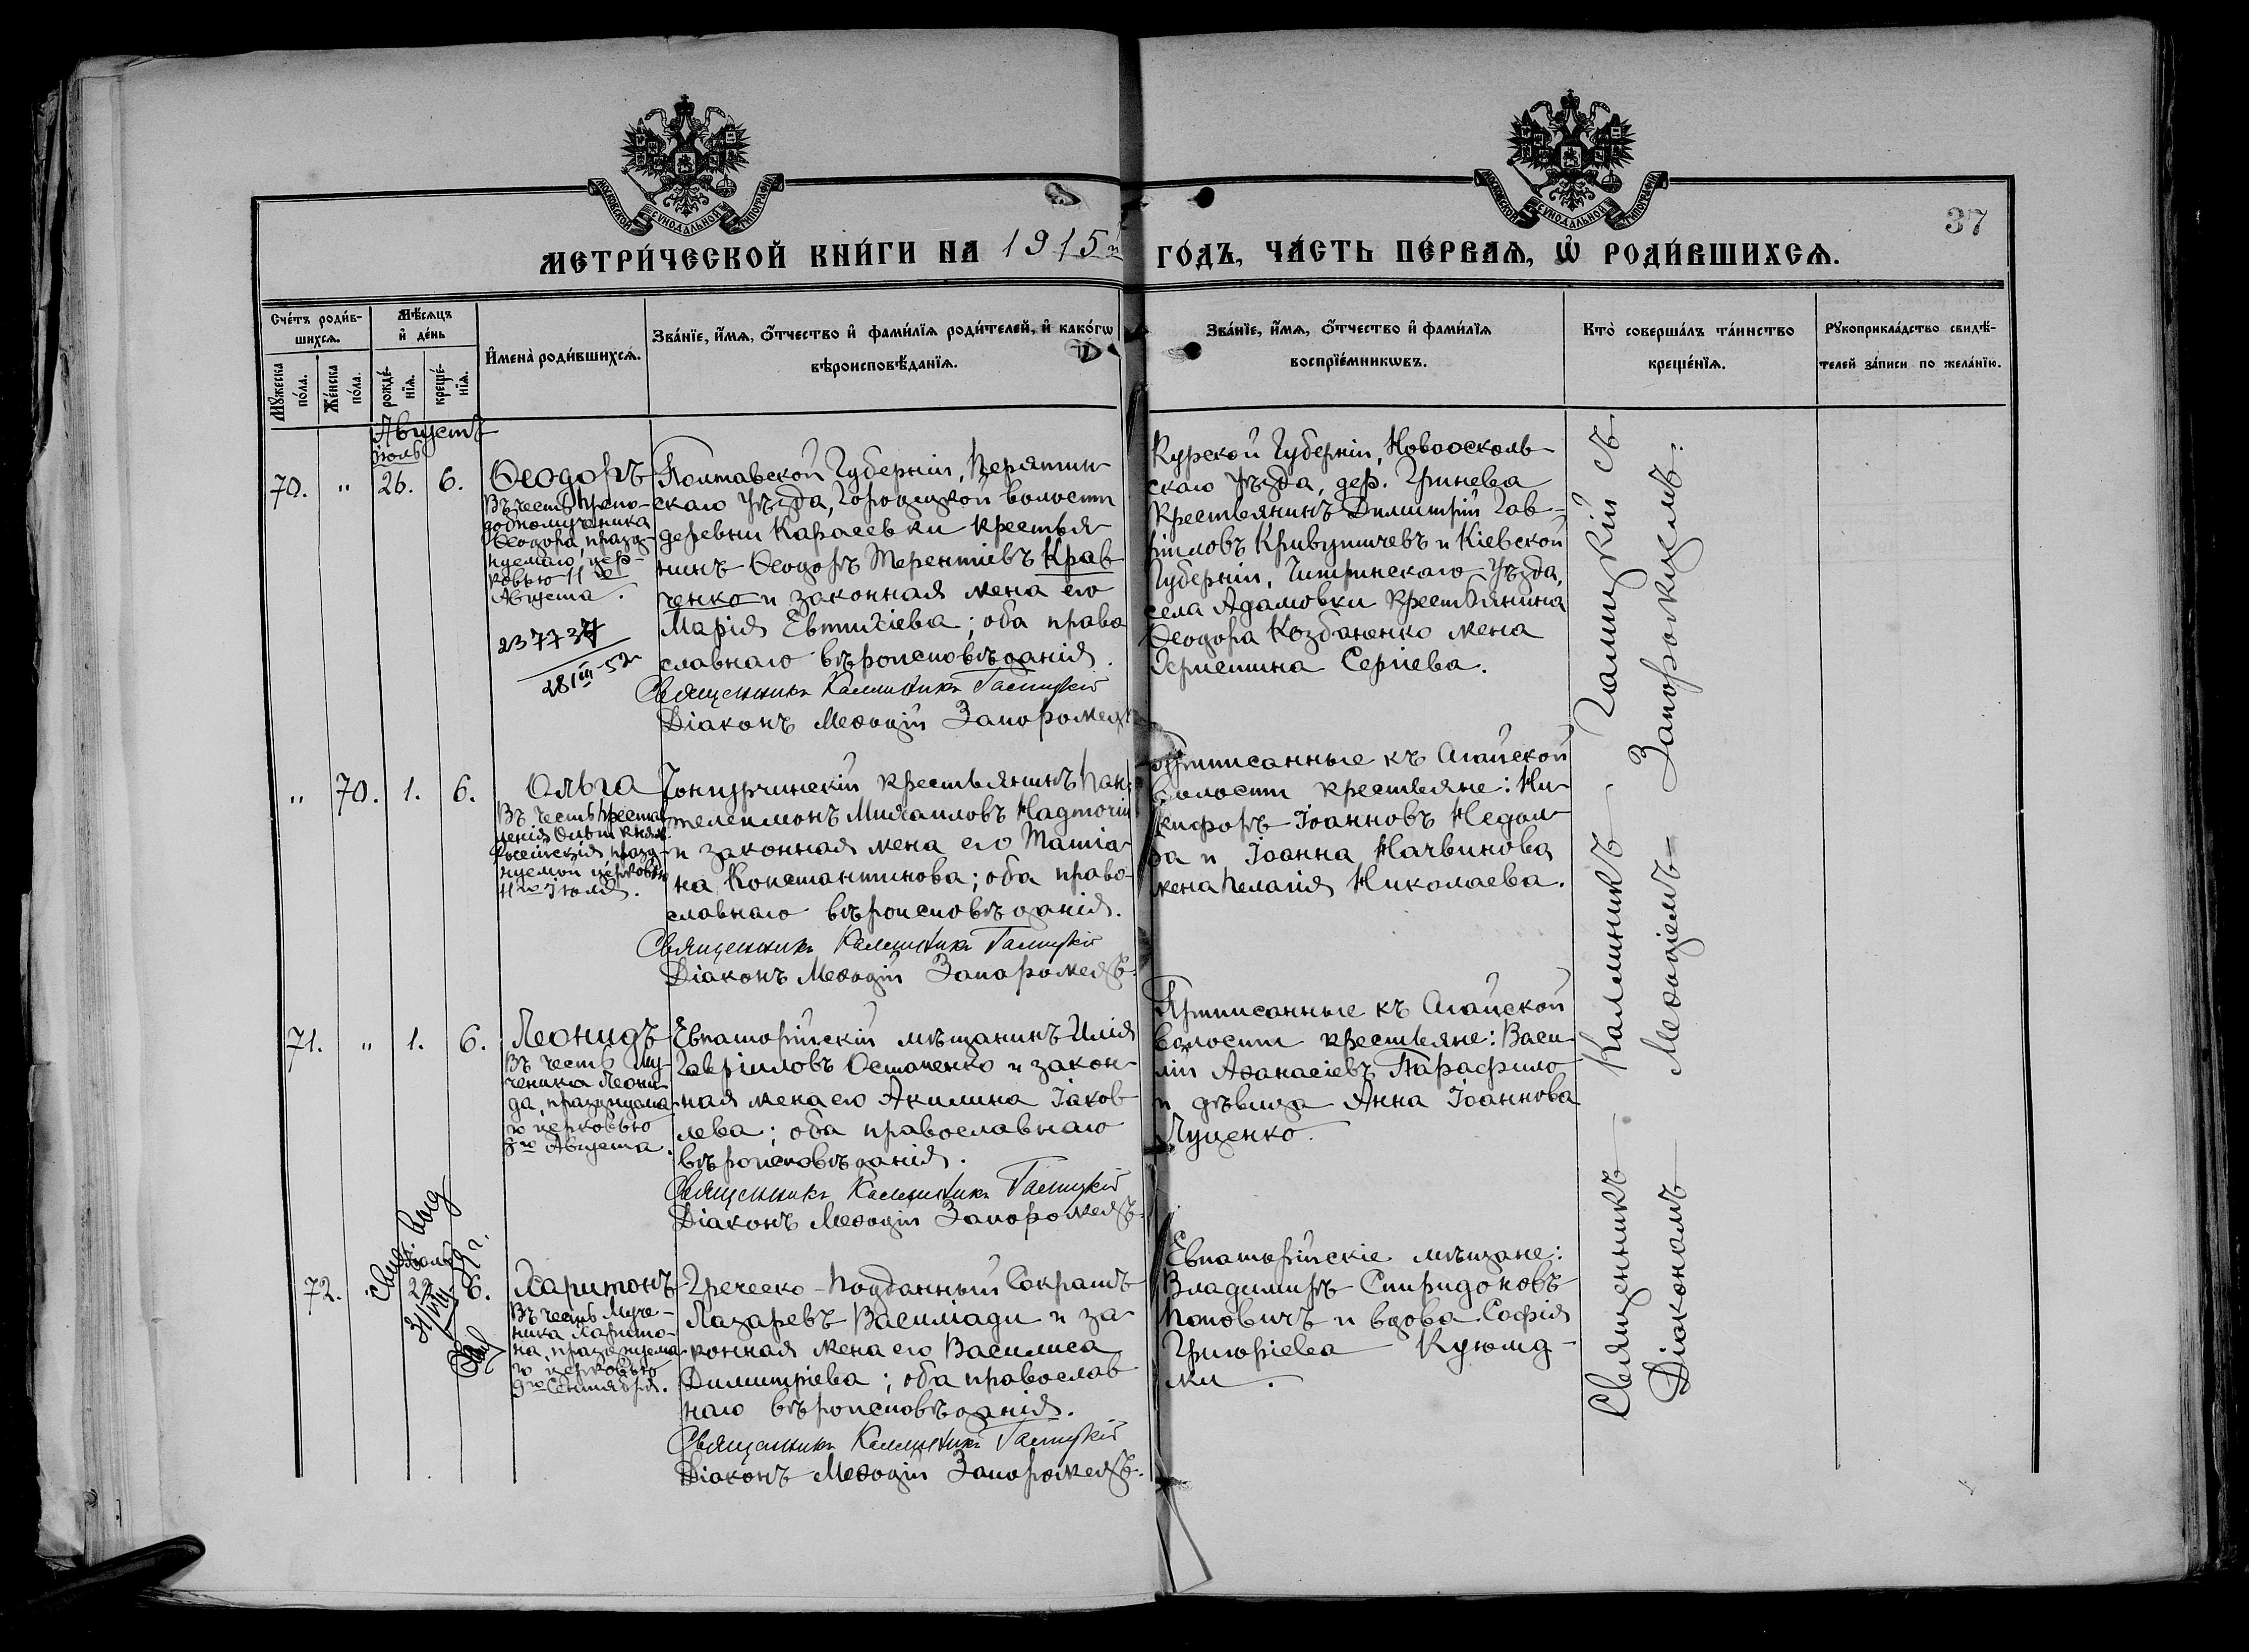 МОСКОВСКОЙ СУНОДАЛЬНОЙ ТИПОГРАФІИ
МОСКОВСКОЙ СУНОДАЛЬНОЙ ТИПОГРАФІИ
37
МЕТРИ́ЧЕСКОЙ КНИ́ГИ НА 1915й ГО́ДЪ, ЧА́СТЬ ПЕ́РВАЯ, Ѡ҆ РОДИ́ВШИХСЯ.
Сче́тъ роди́в-
шихся.
Мѣ́сяцъ
и҆ де́нь
Мꙋ́жеска по́ла.
Же́нска по́ла.
рожде́-
нїя.
креще́-
нїя.
И҆мена̀ роди́вшихся.
Зва́нїе, и҆́мя, ѻ҆́тчество и҆ фами́лїя роди́телей, и҆ како́гѡ
вѣроисповѣ́данїя.
Зва́нїе, и҆́мя, ѻ҆́тчество и҆ фами́лїя
воспрїе́мникѡвъ.
Кто̀ соверша́лъ та́инство
креще́нїя.
Рꙋкоприкла́дство свидѣ́-
телей за́писи по жела́нїю.
Августъ
Іюль
70. " 26. 6.
Ѳеодоръ
Въ честь препо-
добномученика
Ѳеодора, празд-
нуемаго цер-
ковью 11го
Августа.
237737
28/III-52
Полтавской Губерніи, Пирятин-
скаго уѣзда, Городищкой волости
деревни Карасевки крестья-
нинъ Ѳеодоръ Терентіевъ Крав-
ченко и законная жена его
Марія Евтихіева; оба право-
славнаго вѣроисповѣданія.
Священникъ Каллиникъ Галицкій
Діаконъ Меѳодій Запорожецъ
Курской Губерніи, Новоосколь-
скаго уѣзда, дер. Гринева
крестьянинъ Димитрій Гав-
ріиловъ Кривушичевъ и Кіевской
Губерніи, Чигиринскаго уѣзда,
села Адамовки крестьянина
Ѳеодора Козбаненко жена
Сергіева.
" 70. 1. 6.
Ольга
Въ честь престав-
ленія Ольги княг.
Россійскія, празд-
нуемой церковью
11го Іюля.
крестьянинъ Пан-
телеимонъ Михаиловъ Надточій
и законная жена его Татіа-
на Константинова; оба право-
славнаго вѣроисповѣданія.
Священникъ Каллиникъ Галицкій
Діаконъ Меѳодій Запорожецъ.
Приписанные къ Агайской
волости крестьяне: Ни-
кифоръ Іоанновъ
и Іоанна
жена Пелагія Николаева.
71. " 1. 6.
Леонидъ
Въ честь му-
ченика Леони-
да, празднуема-
го церковью
8го Августа.
Евпаторійскій мѣщанинъ Илія
Гавріиловъ Остапенко и закон-
ная жена его Акилина Іаков-
лева; оба православнаго
вѣроисповѣданія.
Священникъ Каллиникъ Галицкій
Діаконъ Меѳодій Запорожецъ.
Приписанные къ Агайской
волости крестьяне: Васи-
лій Аѳанасіевъ Парафило
и дѣвица Анна Іоаннова
Луценко.
72. 22 6.
Іюль
Харитонъ
Въ честь муче-
ника Харито-
на, празднуема-
го церковью
9го Сентября.
Греческо-подданный Сократъ
Лазаревъ Василіади и за-
конная жена его Василиса
Димитріева; оба православ-
наго вѣроисповѣданія.
Священникъ Каллиникъ Галицкій
Діаконъ Меѳодій Запорожецъ.
Евпаторійскіе мѣщане:
Владимиръ Спиридоновъ
Поповичъ и вдова Софія
Григоріева
Священникъ Каллиникъ Галицкій съ
Діакономъ Меѳодіемъ Запорожцемъ.